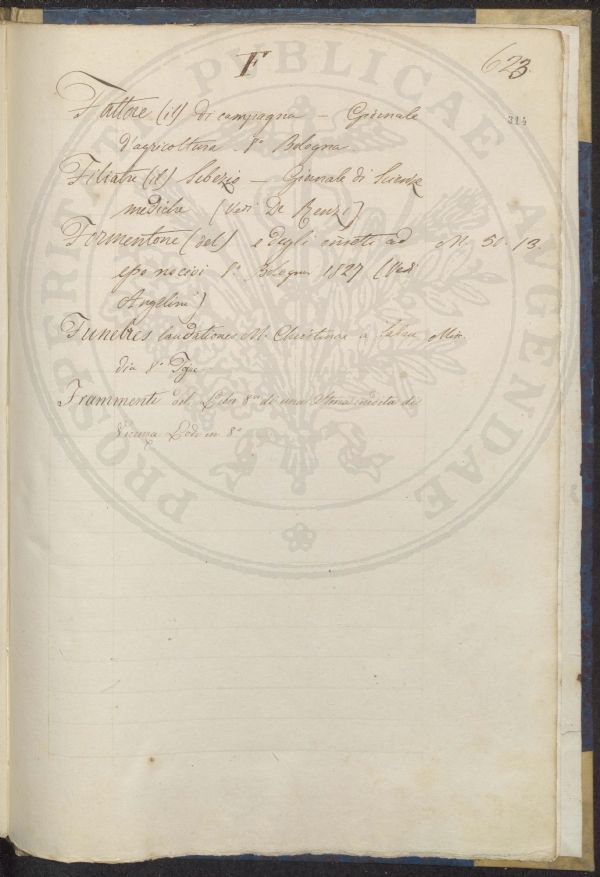 F
623.
314
Fattore (il) di campagna — Giornale
d'agricoltura 8° Bologna
Filiatre (il) Sebezio — Giornale di Scienze
mediche (Vedi De Renzi)
Formentone (del) e degli insetti ad M. 50. 13.
esso nocivi 8° Bologna 1827 (Vedi
Angelini)
Funebres laudationes M. Christinae a
dia 8°
Frammenti del Libro 8° di una Storia inedita di
Vicenza in 8°
PROSPERITATI PUBLICAE AUGENDAE